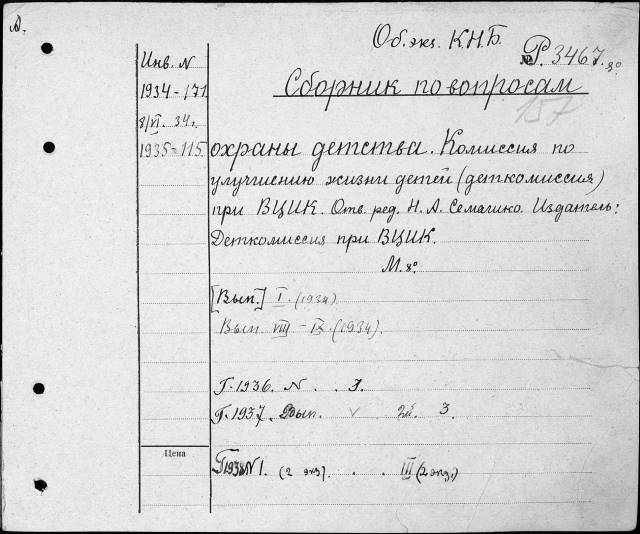 Об. экз. К.Н.Б.
№ Р. 3467. 8°
Сборник по вопросам
157
Инв. N
1934-171
8/VI. 34г.
1935-115
охраны детства. Комиссия по
улучшению жизни детей (деткомиссия)
при ВЦИК. Отв. ред. Н. А. Семашко. Издатель:
Деткомиссия при ВЦИК.
М. 8°
[Вып.] I. (1934)
Вып. VIII - IX. (1934).
Г. 1936. N . . 3.
Г. 1937. 3.
Цена
N 1. (2 экз) . . III (2 экз.)